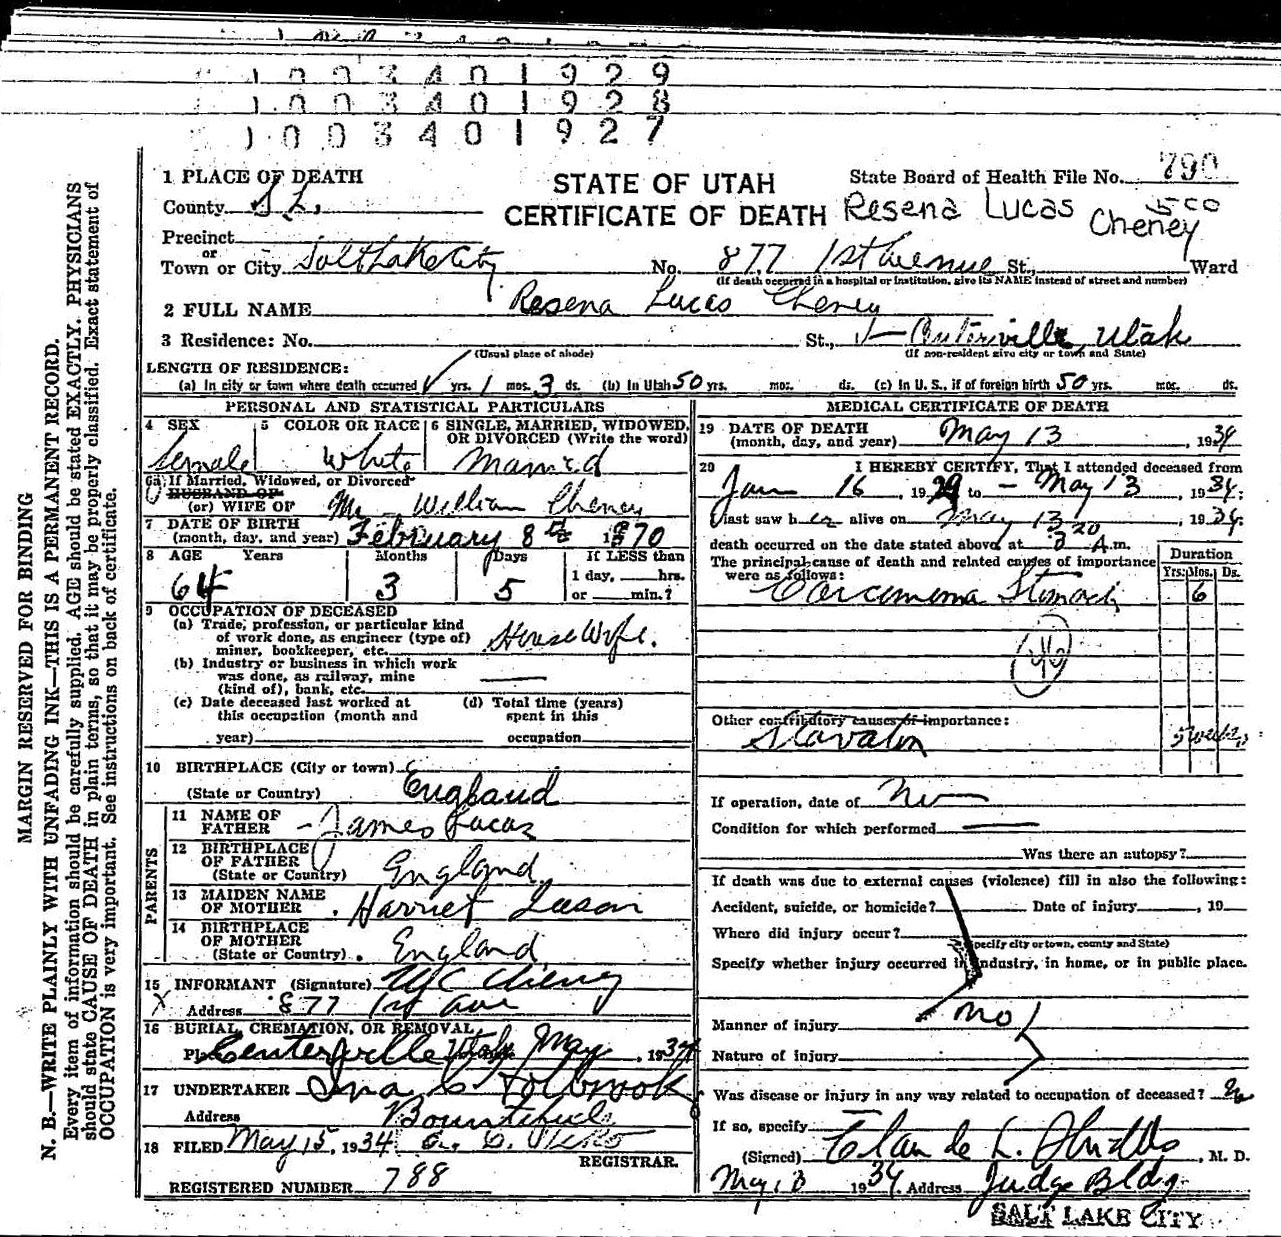 1 0 0 3 4 0 1 9 2 9
1 0 0 3 4 0 1 9 2 8
1 0 0 3 4 0 1 9 2 7
MARGIN RESERVED FOR BINDING
N. B.—WRITE PLAINLY WITH UNFADING INK—THIS IS A PERMANENT RECORD.
Every item of information should be carefully supplied. AGE should be stated EXACTLY. PHYSICIANS
should state CAUSE OF DEATH in plain terms, so that it may be properly classified. Exact statement of
OCCUPATION is very important. See instructions on back of certificate.
1 PLACE OF DEATH
County S L.
STATE OF UTAH
CERTIFICATE OF DEATH
State Board of Health File No. 790
Resena Lucas Cheney
Precinct
or
Town or City Salt Lake City No. 877 1st Avenue St., Ward
(If death occurred in a hospital or institution, give its NAME instead of street and number)
2 FULL NAME Resena Lucas Cheney
3 Residence: No. St., Centerville, Utah
(Usual place of abode) (If non-resident give city or town and State)
LENGTH OF RESIDENCE:
(a) In city or town where death occurred yrs. 1 mos. 3 ds. (b) In Utah 50 yrs. mos. ds. (c) In U. S., if of foreign birth 50 yrs. mos. ds.
PERSONAL AND STATISTICAL PARTICULARS
4 SEX 5 COLOR OR RACE 6 SINGLE, MARRIED, WIDOWED,
OR DIVORCED (Write the word)
female White Married
6a If Married, Widowed, or Divorced
HUSBAND OF
(or) WIFE OF Mr William Cheney
7 DATE OF BIRTH
(month, day, and year) February 8th 1870
8 AGE Years Months Days If LESS than
1 day, hrs.
or min.?
64 3 5
9 OCCUPATION OF DECEASED
(a) Trade, profession, or particular kind
of work done, as engineer (type of)
miner, bookkeeper, etc. House Wife.
(b) Industry or business in which work
was done, as railway, mine
(kind of), bank, etc.
(c) Date deceased last worked at
this occupation (month and
year)
(d) Total time (years)
spent in this
occupation
10 BIRTHPLACE (City or town)
(State or Country) England
PARENTS
11 NAME OF
FATHER James Lucas
12 BIRTHPLACE
OF FATHER
(State or Country) England
13 MAIDEN NAME
OF MOTHER Harriet Eason
14 BIRTHPLACE
OF MOTHER
(State or Country) England
15 INFORMANT (Signature) Cheney
Address 877 1st Ave
16 BURIAL, CREMATION, OR REMOVAL
Centerville Utah May , 1934
17 UNDERTAKER Holbrook
Address Bountiful
18 FILED May 15, 1934
REGISTRAR.
REGISTERED NUMBER 788
MEDICAL CERTIFICATE OF DEATH
19 DATE OF DEATH
(month, day, and year) May 13 , 1934
20 I HEREBY CERTIFY, That I attended deceased from
Jan 16 , 19 to May 13 , 1934;
I last saw her alive on May 13 , 1934;
death occurred on the date stated above, at 3 20 A m.
The principal cause of death and related causes of importance
were as follows:
Duration
Yrs. Mos. Ds.
Carcinoma Stomach 6
46
Other contributory causes of importance:
Starvation 5 weeks
If operation, date of No
Condition for which performed
Was there an autopsy?
If death was due to external causes (violence) fill in also the following:
Accident, suicide, or homicide? Date of injury , 19
Where did injury occur?
(Specify city or town, county and State)
Specify whether injury occurred in industry, in home, or in public place.
no
Manner of injury
Nature of injury
Was disease or injury in any way related to occupation of deceased?
If so, specify
(Signed) Claude L. Shields , M. D.
May 13 1934. Address Judge Bldg
SALT LAKE CITY